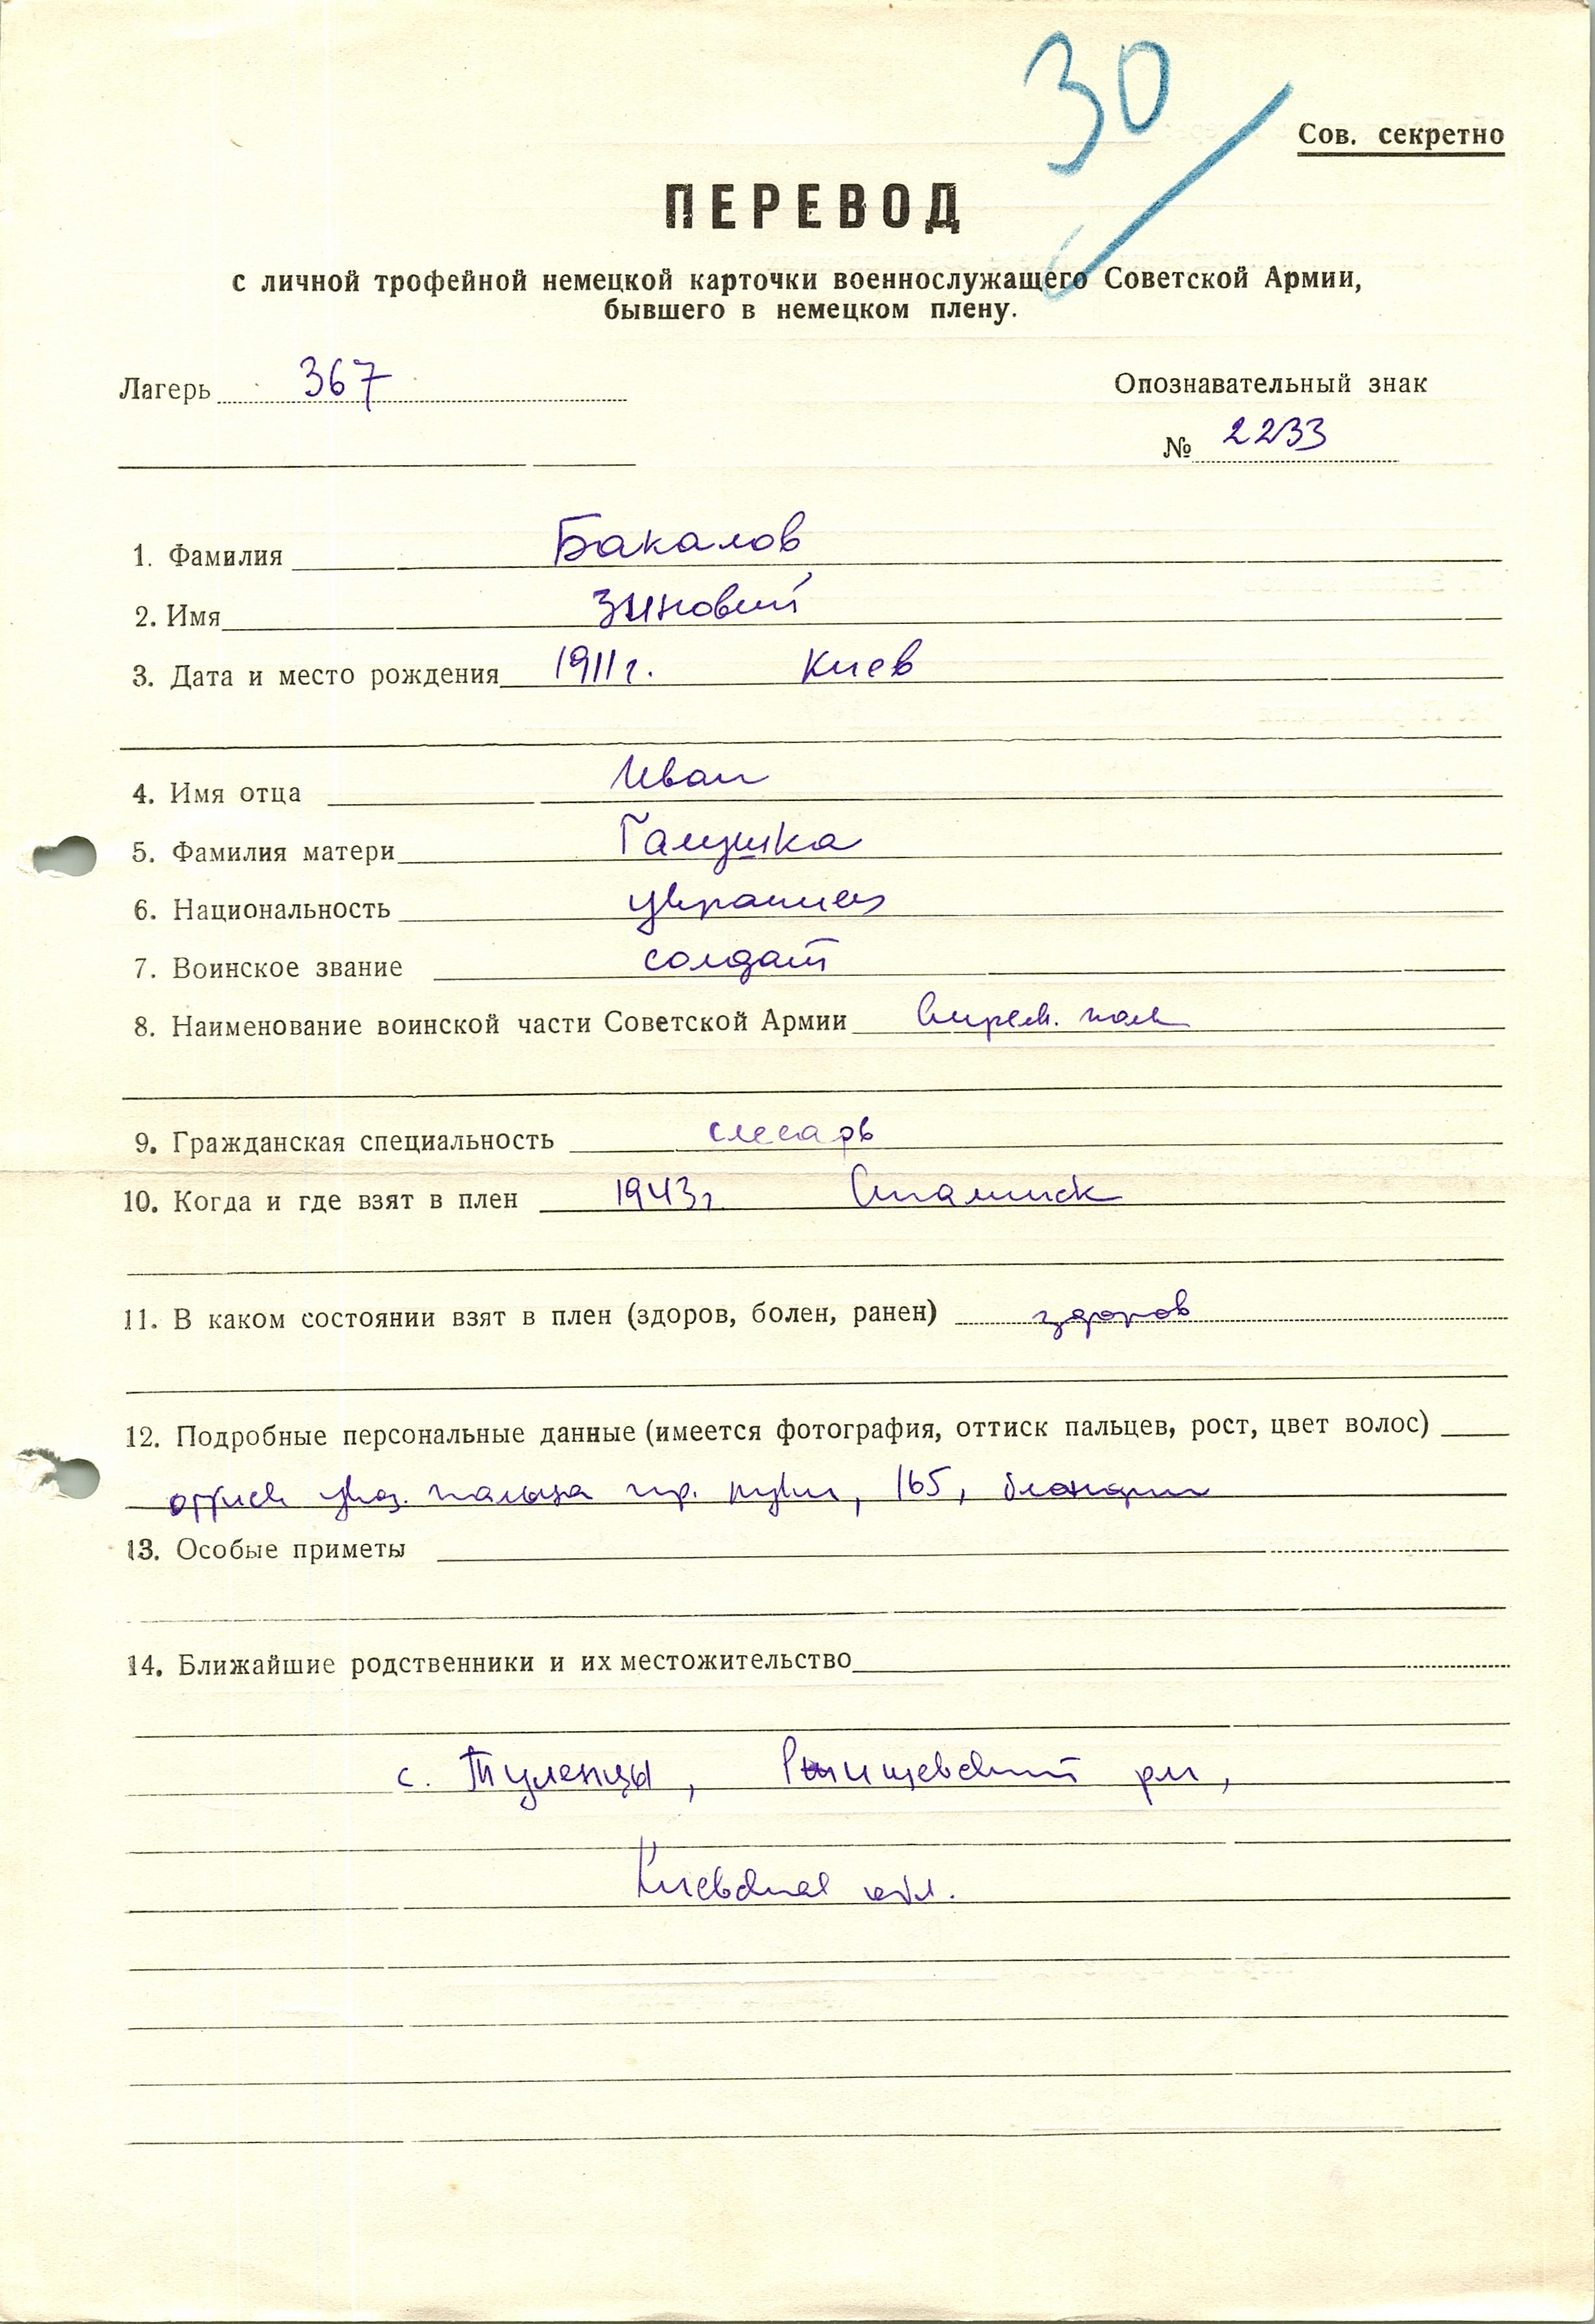 30
Сов. секретно
ПЕРЕВОД
с личной трофейной немецкой карточки военнослужащего Советской Армии,
бывшего в немецком плену.
Лагерь 367
Опознавательный знак
№ 2233
1. Фамилия Бакалов
2. Имя Зиновий
3. Дата и место рождения 1911 г. Киев
4. Имя отца Иван
5. Фамилия матери Галушка
6. Национальность украинец
7. Воинское звание солдат
8. Наименование воинской части Советской Армии Стрелк. полк
9. Гражданская специальность слесарь
10. Когда и где взят в плен 1943 г. Сталинск
11. В каком состоянии взят в плен (здоров, болен, ранен) здоров
12. Подробные персональные данные (имеется фотография, оттиск пальцев, рост, цвет волос)
оттиск указ. пальца пр. руки, 165, блондин
13. Особые приметы
14. Ближайшие родственники и их местожительство
с. Туленцы, Ржищевский р-н,
Киевская обл.